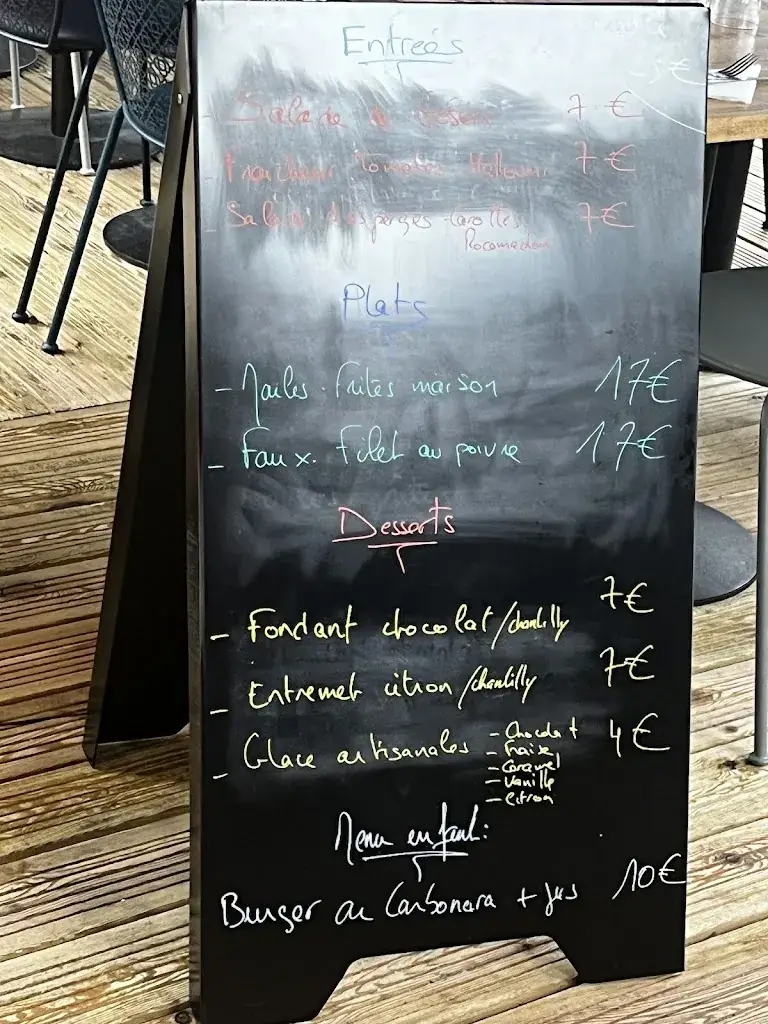 Entreés
5€
- Salade de 7€
- Tomates Halloumi 7€
- Salade d'asperges carottes 7€
Plats
- Moules. frites maison 17€
- Faux. filet au poivre 17€
Desserts
- Fondant chocolat/chantilly 7€
- Entremet citron/chantilly 7€
- Glace artisanales 4€
- Chocolat
- Fraise
- Caramel
- Vanille
- Citron
Menu enfant:
Burger ou Carbonara + jus 10€